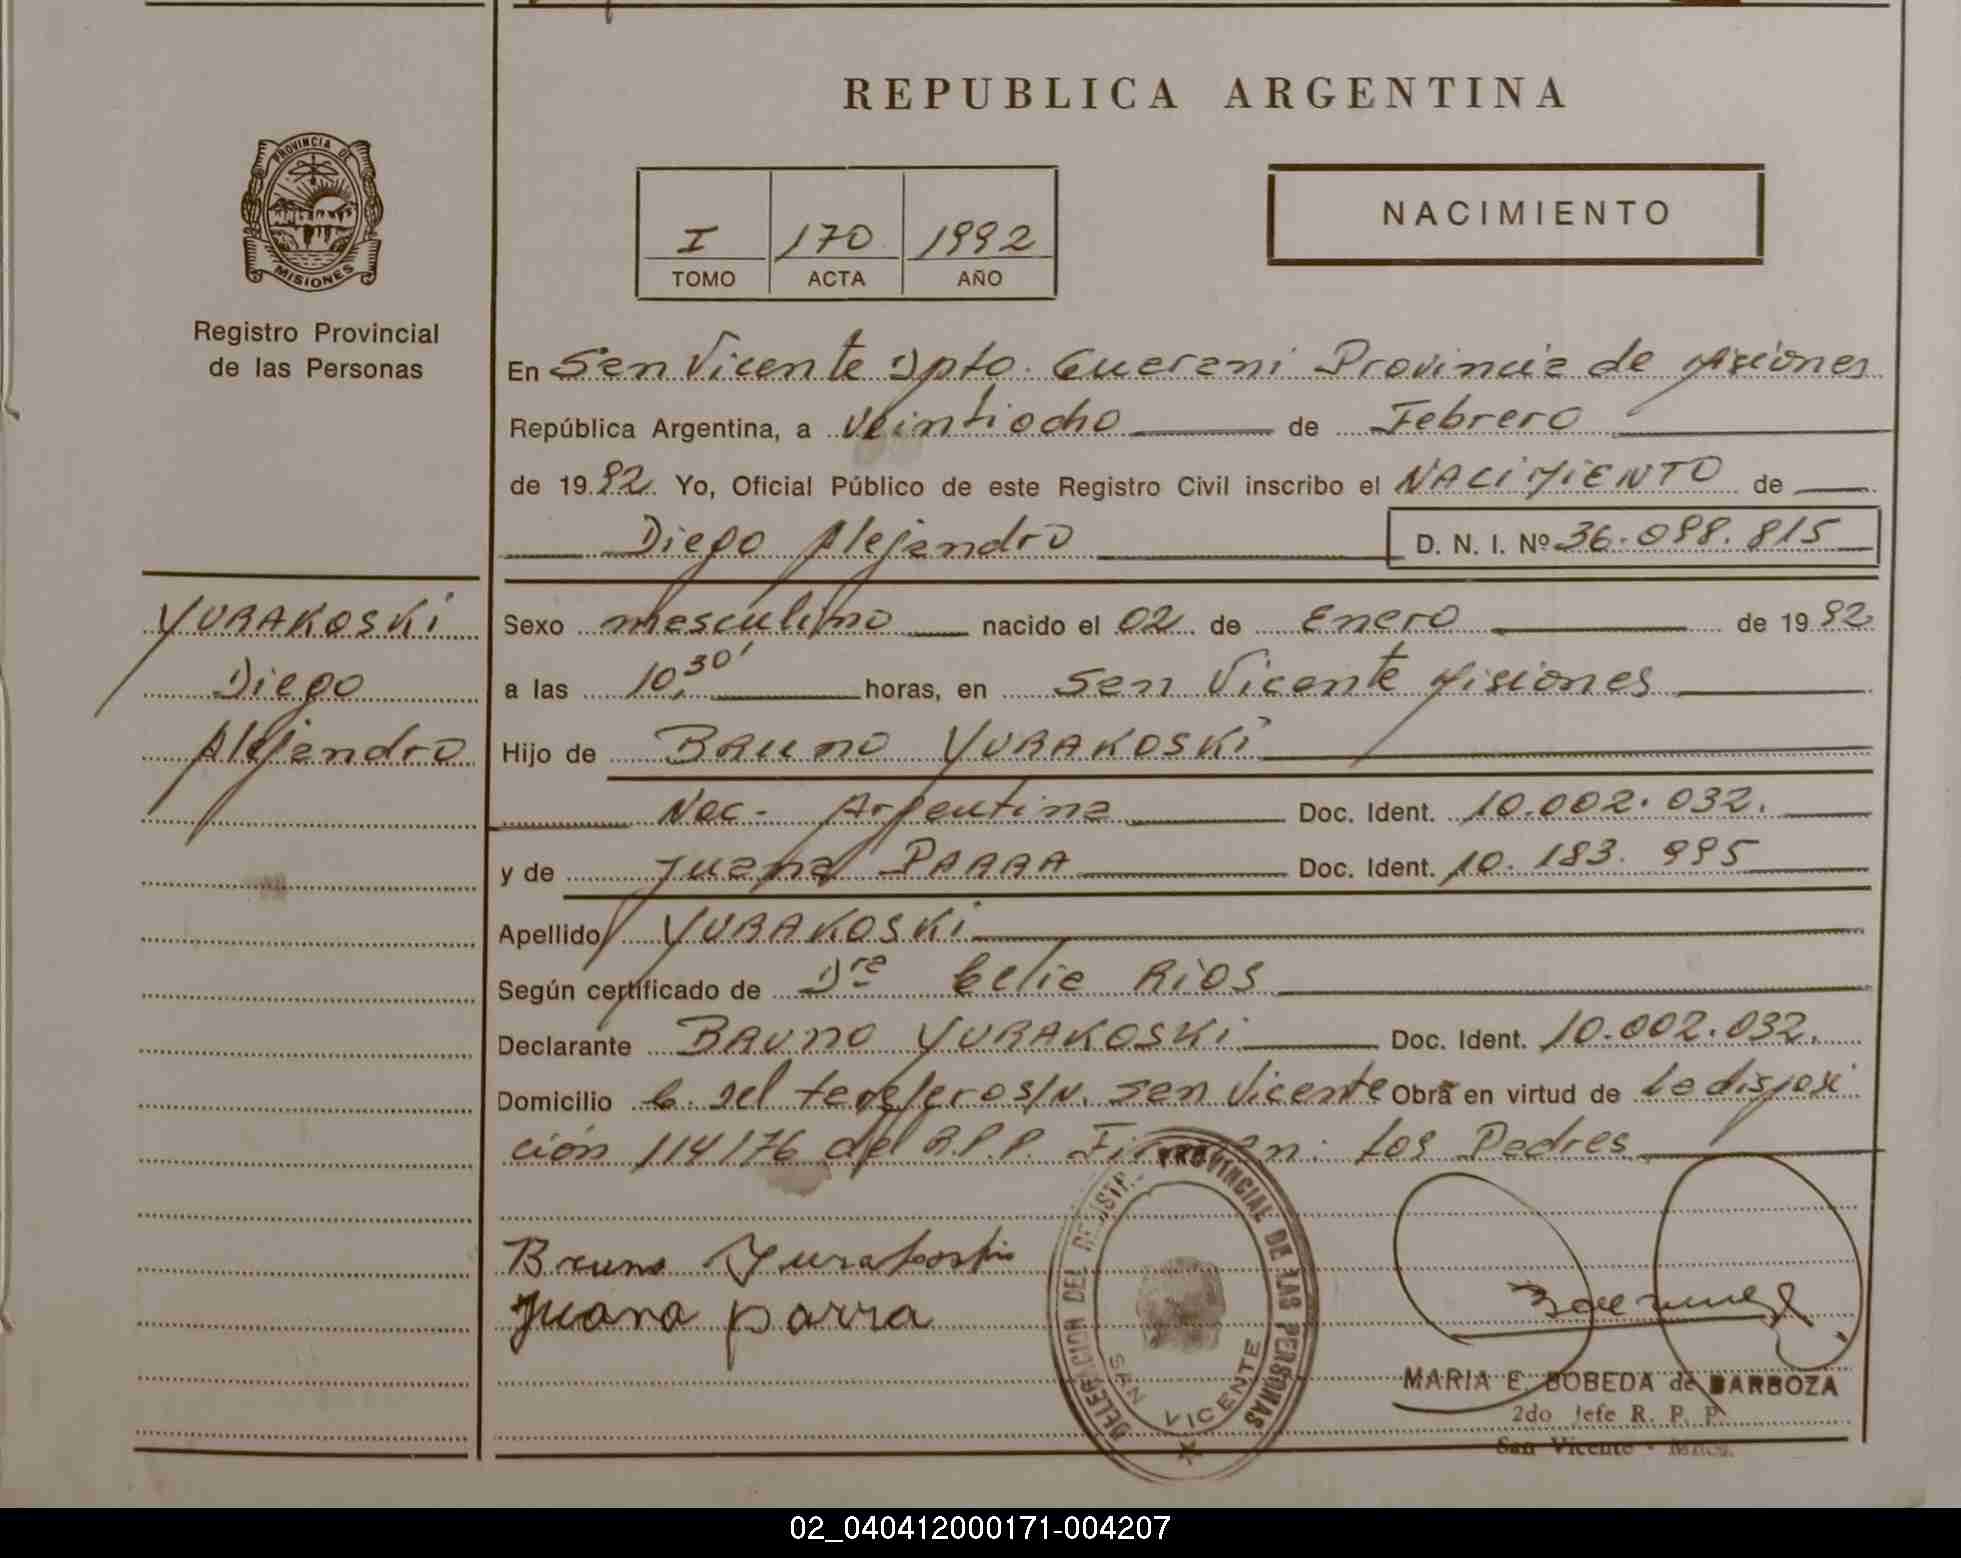 REPUBLICA ARGENTINA
PROVINCIA DE
MISIONES
Registro Provincial
de las Personas
I 170 1992
TOMO ACTA AÑO
NACIMIENTO
En San Vicente Dpto. Guarani Provincia de Misiones
República Argentina, a Veintiocho de Febrero
de 1992 Yo, Oficial Público de este Registro Civil inscribo el NACIMIENTO de
Diego Alejandro D. N. I. Nº 36.098.815
YURAKOSKi
Diego
Alejandro
Sexo masculino nacido el 02 de Enero de 1992
a las 10,30' horas, en San Vicente Misiones
Hijo de Bruno YURAKOSKi
Nac- Argentina Doc. Ident. 10.002.032.
y de Juana PARRA Doc. Ident. 10.183.995
Apellido YURAKOSKi
Según certificado de Dra Celia Rios
Declarante BRUNO YURAKOSKi Doc. Ident. 10.002.032.
Domicilio B. del tarefero s/n. San Vicente Obra en virtud de la disposi
ción 114/76 del R.P.P. Firman: los Padres
Bruno Yurakoski
Juana parra
DELEGACION DEL REGISTRO PROVINCIAL DE LAS PERSONAS
SAN VICENTE
MARIA E. BOBEDA de BARBOZA
2do Jefe R. P. P.
San Vicente - Mnes.
02_040412000171-004207